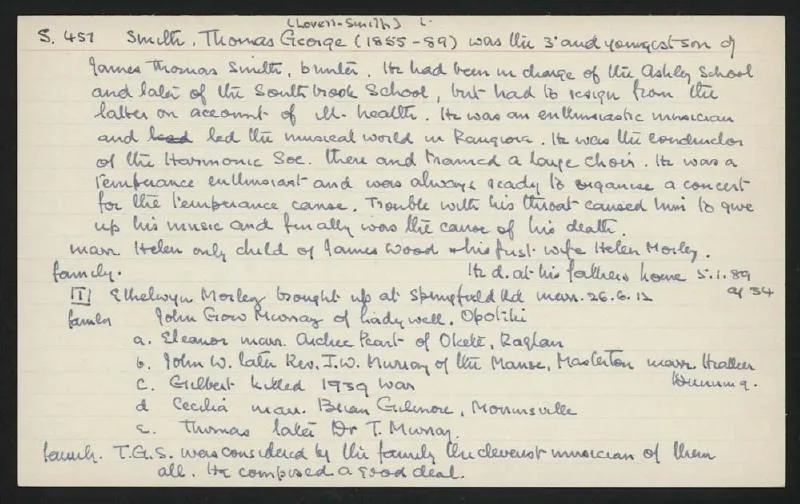 (Lovell-Smith)
S. 451 Smith, Thomas George (1855-89) was the 3rd and youngest son of
James Thomas Smith, bunter. He had been in charge of the Ashley School
and later of the Southbrook School, but had to resign from the
latter on account of ill-health. He was an enthusiastic musician
and lead led the musical world in Rangiora. He was the conductor
of the Harmonic Soc. there and trained a large choir. He was a
temperance enthusiast and was always ready to organise a concert
for the temperance cause. Trouble with his throat caused him to give
up his music and finally was the cause of his death.
marr. Helen only child of James Wood & his first wife Helen Morley.
family. He d. at his fathers home 5.1.89
ag 34
II Ethelwyn Morley brought up at Springfield Rd marr. 26.6.12
family John Gow Murray of Ladywell, Opotiki
a. Eleanor marr. Archee Peart of Okete, Raglan
b. John W. later Rev. J.W. Murray of the Manse, Masterton marr. Heather
c. Gilbert killed 1939 war
d Cecilia marr. Brian Gilmore, Morrinsville
e. Thomas later Dr T. Murray.
family. T.G.S. was considered by the family the cleverest musician of them
all. He composed a good deal.